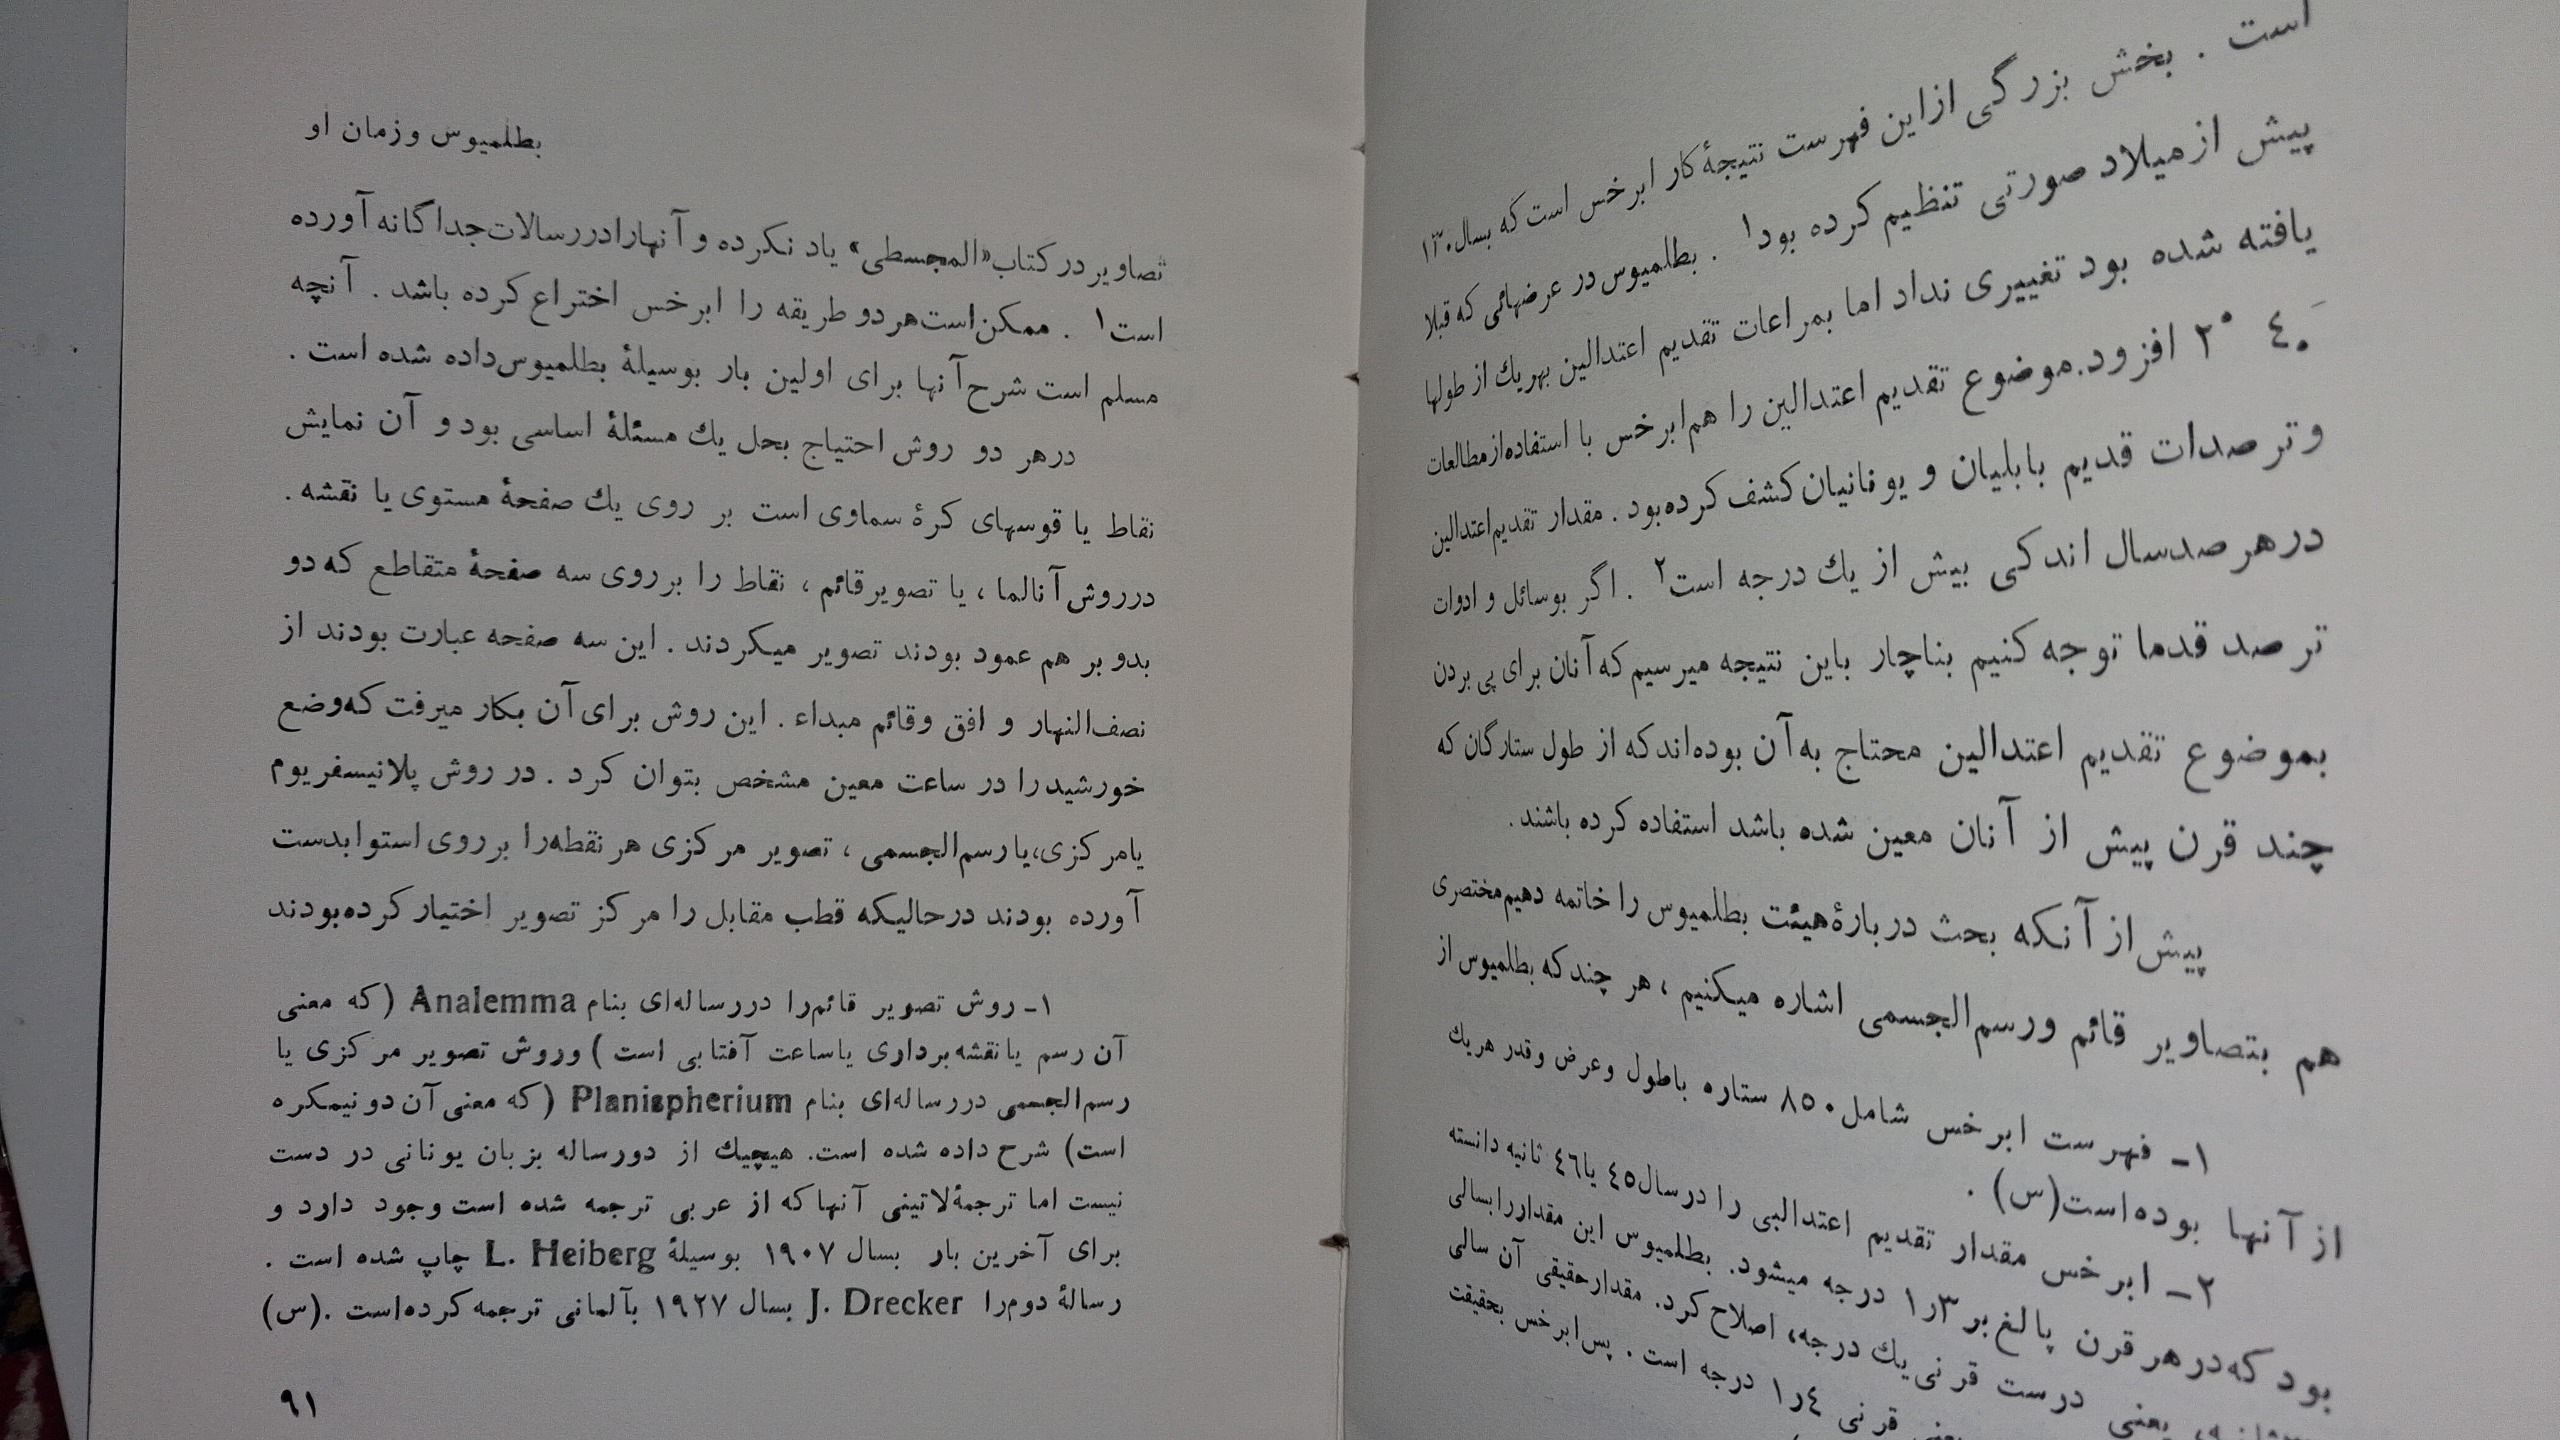 است . بخش بزرگی ازاین فهرست نتیجهٔ کار ابرخس است که بسال ۱۳۰
پیش ازمیلاد صورتی تنظیم کرده بود۱ . بطلمیوس در عرضهائی که قبلا
یافته شده بود تغییری نداد اما بمراعات تقدیم اعتدالین بهریك از طولها
۲° ٤۰َ افزود.موضوع تقدیم اعتدالین را هم‌ابرخس با استفاده‌ازمطالعات
وترصدات قدیم بابلیان و یونانیان‌کشف کرده‌بود . مقدار تقدیم‌اعتدالین
درهرصدسال اندکی بیش از یك درجه است۲ . اگر بوسائل و ادوات
ترصد قدما توجه کنیم بناچار باین نتیجه میرسیم که آنان برای پی بردن
بموضوع تقدیم اعتدالین محتاج به‌آن بوده‌اندکه از طول ستارگان که
چند قرن پیش از آنان معین شده باشد استفاده کرده باشند.
پیش‌از آنکه بحث دربارهٔ‌هیئت بطلمیوس را خاتمه دهیم‌مختصری
هم بتصاویر قائم ورسم‌الجسمی اشاره میکنیم ، هر چندکه بطلمیوس از
۱- فهرست ابرخس شامل۸۵۰ ستاره باطول وعرض وقدر هریك
از آنها بوده‌است(س) .
۲- ابرخس مقدار تقدیم اعتدالیی را درسال٤٥ یا٤٦ ثانیه دانسته
بود که‌در هرقرن پالغ‌بر ۱ر۳ درجه میشود. بطلمیوس این مقداررابسالی
یعنی درست قرنی‌یك درجه، اصلاح‌کرد. مقدارحقیقی آن سالی
یعنی قرنی ۱ر٤ درجه است . پس‌ابرخس بحقیقت
بطلمیوس وزمان او
تصاویردر کتاب«المجسطی» یاد نکرده و آنهارادررسالات‌جداگانه‌آورده
است۱ . ممکن‌است‌هردو طریقه را ابرخس اختراع‌کرده باشد . آنچه
مسلم است شرح‌آنها برای اولین بار بوسیلهٔ بطلمیوس‌داده شده است .
درهر دو روش احتیاج بحل یك مسئلهٔ اساسی بودو آن نمایش
نقاط یا قوسهای کرهٔ سماوی است بر روی یك صفحهٔ مستوی یا نقشه .
درروش‌آنالما ، یا تصویرقائم ، نقاط را برروی سه صفحهٔ متقاطع که دو
بدو بر هم عمود بودند تصویر میکردند . این سه صفحه عبارت بودند از
نصف‌النهار و افق وقائم مبداء . این روش برای‌آن بکار میرفت که‌وضع
خورشیدرا در ساعت معین مشخص بتوان کرد . در روش پلانیسفریوم
یامرکزی،یارسم‌الجسمی ، تصویر مرکزی هرنقطه‌را برروی استوابدست
آورده بودند درحالیکه قطب مقابل را مرکز تصویر اختیارکرده‌بودند
۱- روش تصویر قائم‌را دررساله‌ای بنام Analemma (که معنی
آن رسم یانقشه‌برداری یاساعت آفتابی است ) وروش تصویر مرکزی یا
رسم‌الجسمی دررساله‌ای بنام Planispherium (که معنی‌آن‌دونیمکره
است) شرح داده شده است. هیچیك از دورساله بزبان یونانی در دست
نیست اما ترجمهٔ‌لاتینی آنهاکه از عربی ترجمه شده است وجود دارد و
برای آخرین بار بسال ۱۹۰۷ بوسیلهٔ L. Heiberg چاپ شده است .
رسالهٔ دوم‌را J. Drecker بسال ۱۹۲۷ بآلمانی ترجمه‌کرده‌است .(س)
۹۱